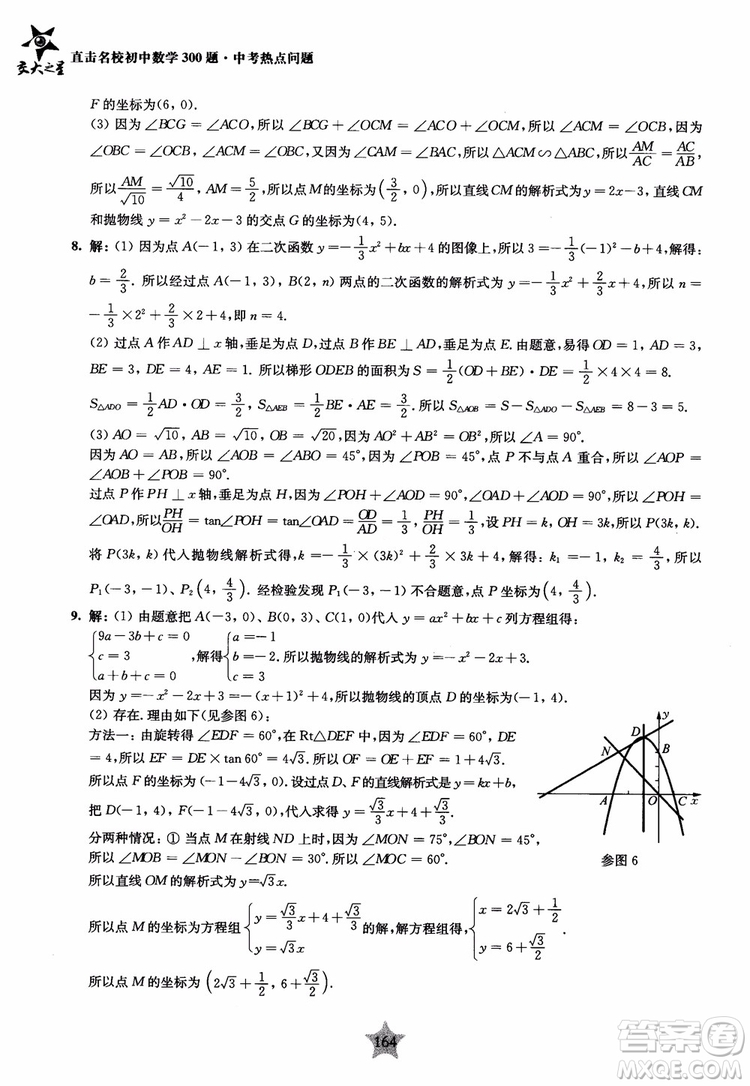 交大之星
直击名校初中数学300题·中考热点问题
F的坐标为(6, 0).
(3) 因为∠BCG=∠ACO,所以∠BCG+∠OCM=∠ACO+∠OCM=∠OCB,因为
∠OBC=∠OCB,所以∠OBC=∠ACM,又因为∠CAM=∠BAC,所以△ACM∽△ABC,所以AM/AC=AC/AB,
所以AM/√10=√10/4, AM=5/2,所以点M的坐标为(3/2, 0),所以直线CM的解析式为y=2x-3,直线CM
和抛物线y=x²-2x-3的交点G的坐标为(4, 5).
8. 解:(1) 因为点A(-1, 3)在二次函数y=-1/3x²+bx+4的图像上,所以3=-1/3(-1)²-b+4,解得:
b=2/3. 所以过点A(-1, 3), B(2, n)两点的二次函数的解析式为y=-1/3x²+2/3x+4,所以n=
-1/3×2²+2/3×2+4,即n=4.
(2) 过点A作AD⊥x轴,垂足为点D,过点B作BE⊥AD,垂足为点E. 由题意,易得OD=1, AD=3,
BE=3, DE=4. 所以梯形ODEB的面积为S=1/2(OD+BE)·DE=1/2×4×4=8.
S△ADO=1/2AD·OD=3/2, S△AEB=1/2BE·AE=3/2. 所以S△AOB=S-S△ADO-S△AEB=8-3=5.
(3) AO=√10, AB=√10, OB=√20,所以AO²+AB²=OB²,所以∠A=90°.
因为AO=AB,所以∠AOB=∠ABO=45°,因为∠POB=45°,因为点P不与点A重合,所以∠AOP=
∠AOB+∠POB=90°.
过点P作PH⊥x轴,垂足为点H,因为∠POH+∠AOD=90°,∠OAD+∠AOD=90°,所以∠POH=
∠OAD,所以PH/OH=tan∠POH=tan∠OAD=OD/AD=1/3, PH/OH=1/3,设PH=k, OH=3k,所以P(3k, k).
将P(3k, k)代入抛物线解析式得,k=-1/3×(3k)²+2/3×3k+4,解得:k₁=-1, k₂=4/3,所以
P₁(-3, -1)、P₂(4, 4/3). 经检验P₁不合题意,所以P的坐标为(4, 4/3).
9. 解:(1) 由题意把A(-3, 0)、B(0, 3)、C(1, 0)代入y=ax²+bx+c列方程组得:
{9a-3b+c=0 c=3 a+b+c=0 ,解得{a=-1 b=-2 c=3 . 所以抛物线的解析式为y=-x²-2x+3.
因为y=-x²-2x+3=-(x+1)²+4,所以抛物线的顶点D的坐标为(-1, 4).
(2) 存在. 理由如下(见参图6):
方法一:由旋转得∠EDF=60°,在Rt△DEF中,因为∠EDF=60°, DE
=4,所以EF=DE×tan60°=4√3. 所以OF=OE+EF=1+4√3.
所以点F的坐标为(-1-4√3, 0). 设过点D、F的直线解析式为y=kx+b,
把D(-1, 4), F(-1-4√3, 0),代入求得y=√3/3x+√3/3+4.
分两种情况:① 当点M在射线ND上时,因为∠MON=75°,∠BON=45°,
所以∠MOB=∠MON-∠BON=30°. 所以∠MOC=60°.
所以直线OM的解析式为y=√3x.
所以点M的坐标为方程组{y=√3/3x+4+√3/3 y=√3x 的解,解方程组得,{x=2√3+1/2 y=6+√3/2 .
所以点M的坐标为(2√3+1/2, 6+√3/2)
y
D
N
B
A
O
C
x
参图6
164
答案圈
MXQE.COM